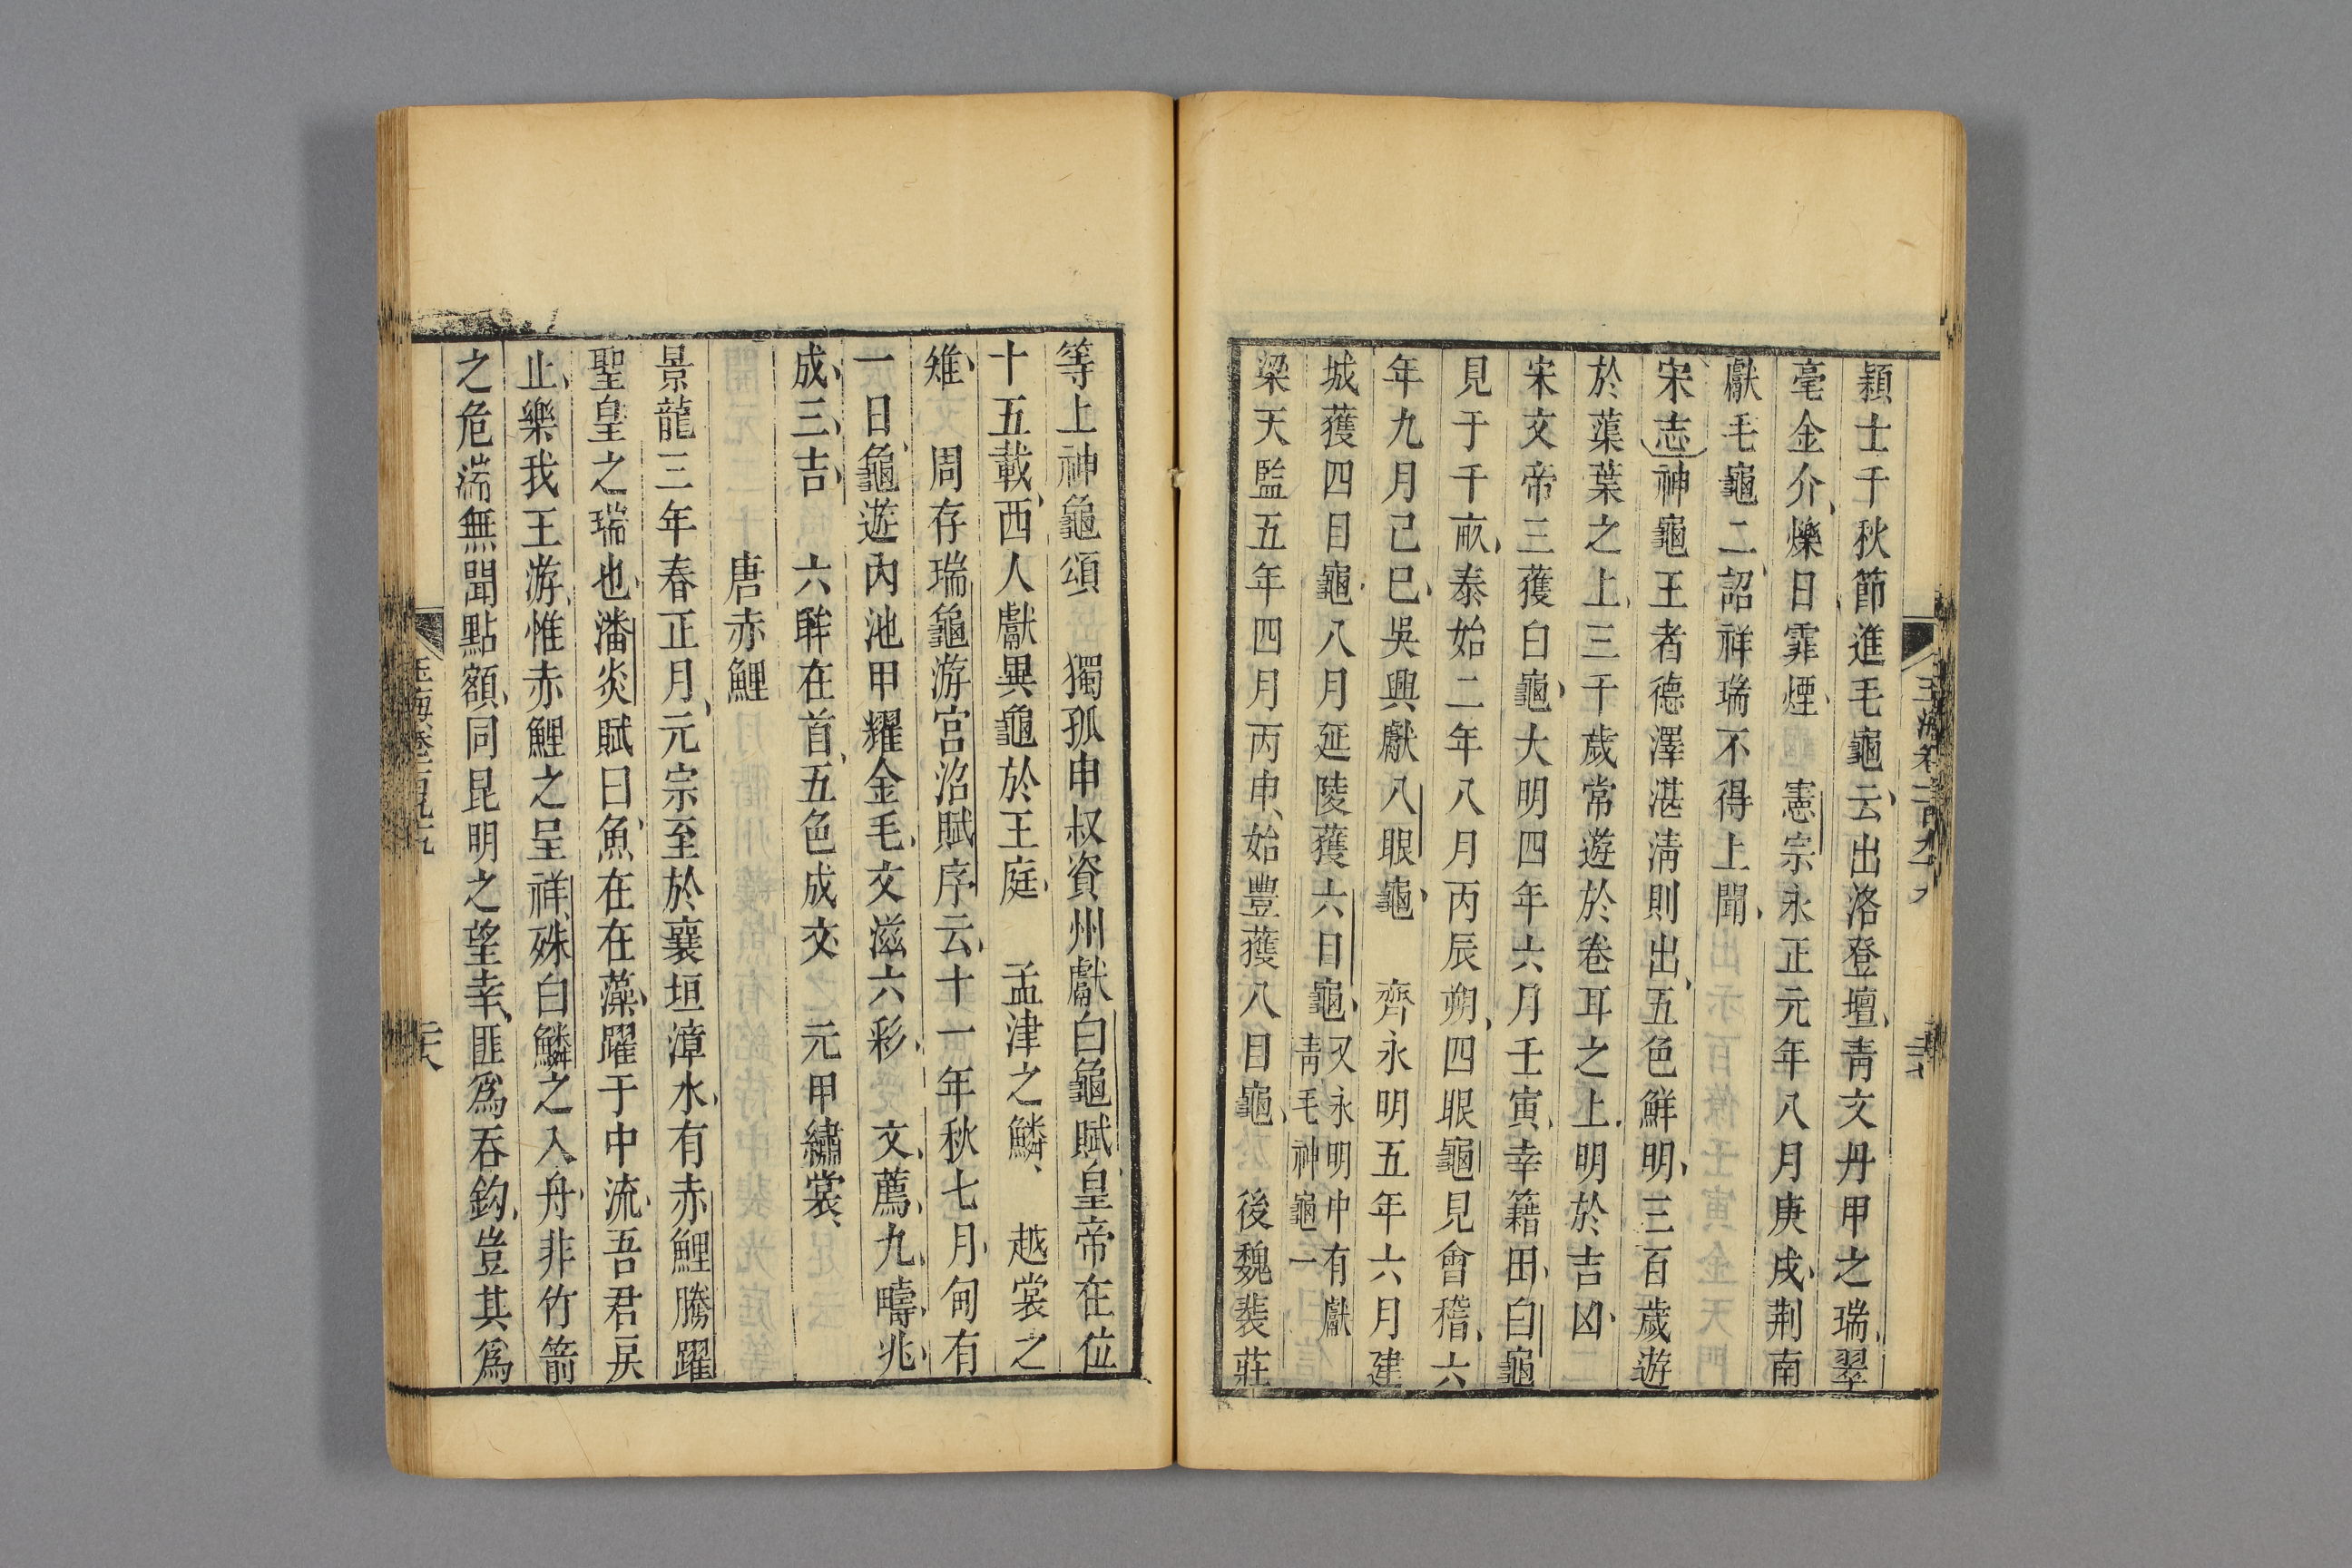 潁士千秋節進毛龜云出洛登壇靑文丹甲之瑞翠
毫金介爍日霏煙　憲宗永正元年八月庚戌荆南
獻毛龜二詔祥瑞不得上聞
宋志神龜王者德澤湛淸則出五色鮮明三百歲遊
於蕖葉之上三千歲常遊於卷耳之上明於吉凶
宋文帝三獲白龜大明四年六月壬寅幸籍田白龜
見于千畝泰始二年八月丙辰朔四眼龜見會稽六
年九月己巳吳興獻八眼龜　齊永明五年六月建
城獲四目龜八月延陵獲六目龜又永明中有獻
靑毛神龜一
梁天監五年四月丙申始豐獲八目龜　後魏裴莊
等上神龜頌　獨孤申叔資州獻白龜賦皇帝在位
十五載西人獻異龜於王庭　孟津之鱗　越裳之
雉　周存瑞龜游宮沼賦序云十一年秋七月甸有
一日龜遊內池甲耀金毛文滋六彩　文薦九疇兆
成三吉　六眸在首五色成文　元甲繡裳
唐赤鯉
景龍三年春正月元宗至於襄垣漳水有赤鯉騰躍
聖皇之瑞也潘炎賦曰魚在在藻躍于中流吾君戾
止樂我王游惟赤鯉之呈祥殊白鱗之入舟非竹箭
之危湍無聞點額同昆明之望幸匪爲吞鈎豈其爲